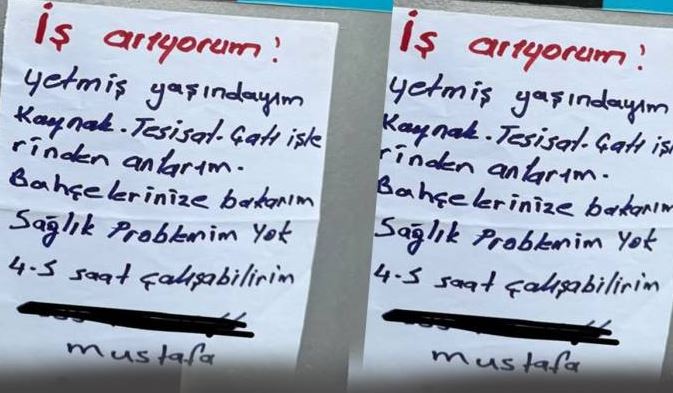 İş arıyorum!
yetmiş yaşındayım
Kaynak. Tesisat. Çatı işle
rinden anlarım.
Bahçelerinize bakarım
Sağlık Problemim Yok
4-5 saat çalışabilirim
mustafa
İş arıyorum!
yetmiş yaşındayım
Kaynak. Tesisat. Çatı iş
rinden anlarım.
Bahçelerinize bakarım
Sağlık Problemim Yok
4-5 saat çalışabilirim
mustafa